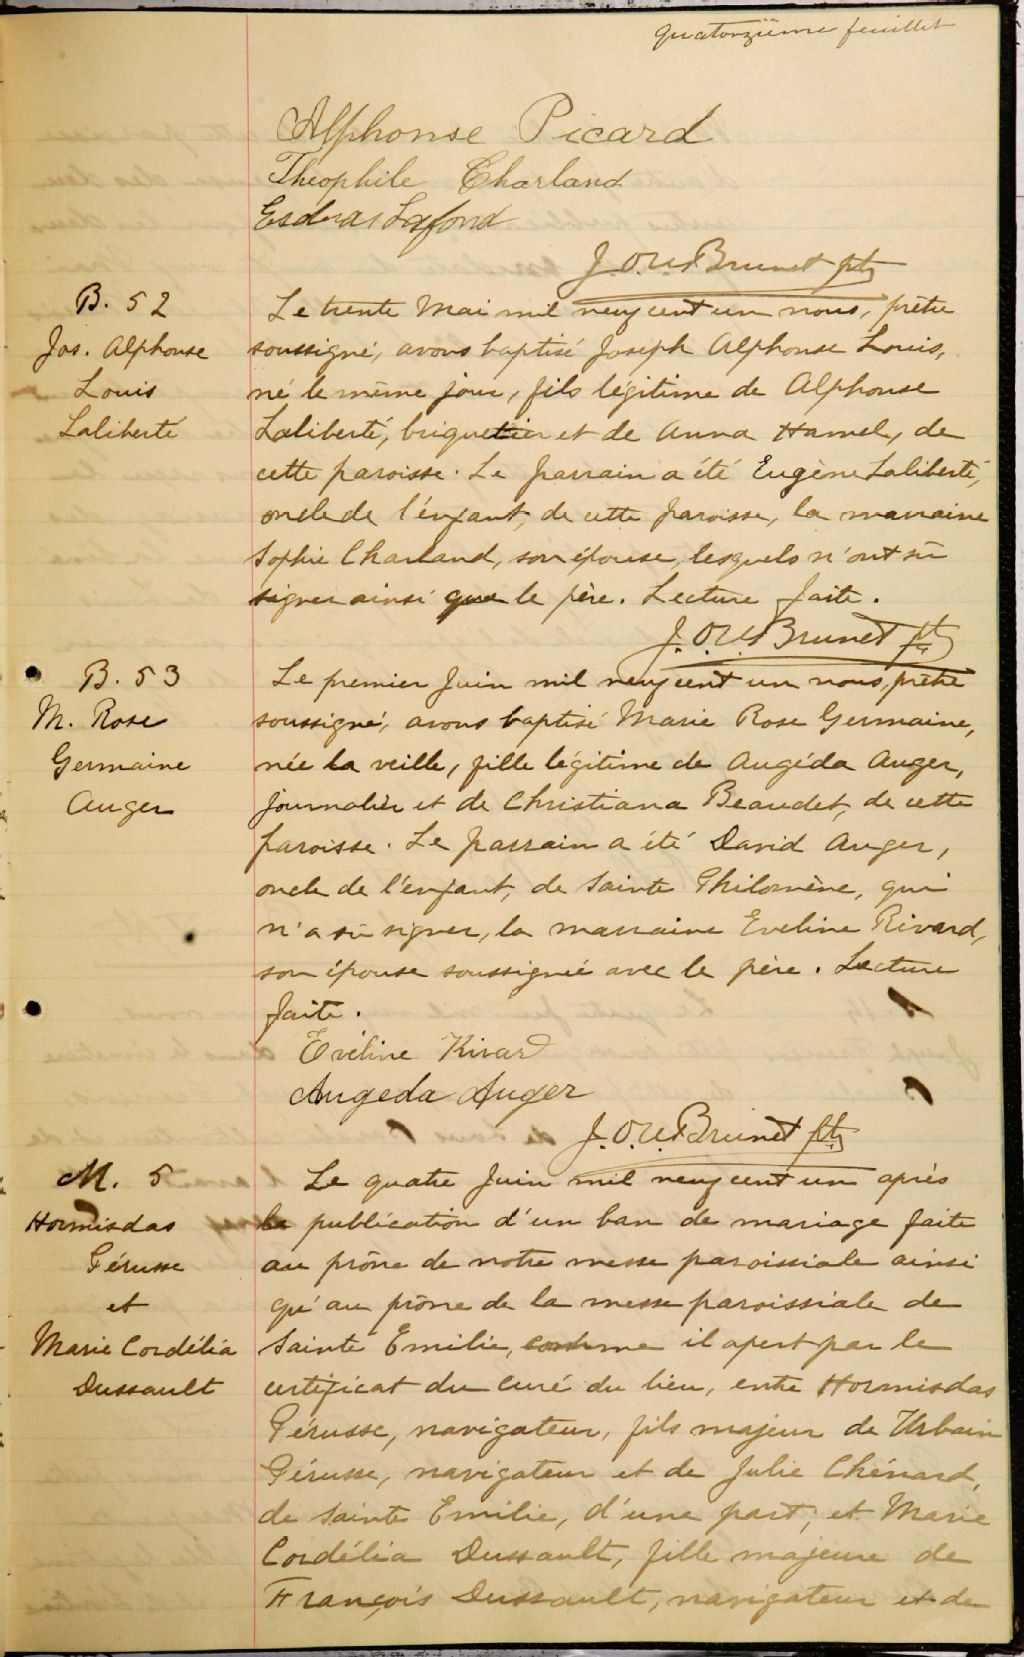 quatorzième feuillet
Alphonse Picard
Théophile Charland
Esdras Lafond
J. O. U. Brunet ptr
B. 52
Jos. Alphonse
Louis
Laliberté
Le trente Mai mil neuf cent un nous, prêtre
soussigné, avons baptisé Joseph Alphonse Louis,
né le même jour, fils légitime de Alphonse
Laliberté, briquetier et de Anna Hamel, de
cette paroisse. Le parrain a été Eugène Laliberté,
oncle de l'enfant, de cette paroisse, la marraine
Sophie Charland, son épouse, lesquels n'ont sû
signer ainsi que le père. Lecture faite.
J. O. U. Brunet ptr
B. 53
M. Rose
Germaine
Auger
Le premier Juin mil neuf cent un nous, prêtre
soussigné, avons baptisé Marie Rose Germaine,
née la veille, fille légitime de Augéda Auger,
journalier et de Christiana Beaudet, de cette
paroisse. Le parrain a été David Auger,
oncle de l'enfant, de Sainte Philomène, qui
n'a sû signer, la marraine Eveline Rivard,
son épouse soussignée avec le père. Lecture
faite.
Eveline Rivard
Augeda Auger
J. O. U. Brunet ptr
M. 5
Hormisdas
Pérusse
et
Marie Cordélia
Dussault
Le quatre Juin mil neuf cent un après
la publication d'un ban de mariage faite
au prône de notre messe paroissiale ainsi
qu'au prône de la messe paroissiale de
Sainte Emilie, comme il apert par le
certificat du curé du lieu, entre Hormisdas
Pérusse, navigateur, fils majeur de Urbain
Pérusse, navigateur et de Julie Chénard,
de Sainte Emilie, d'une part; et Marie
Cordélia Dussault, fille majeure de
François Dussault, navigateur et de